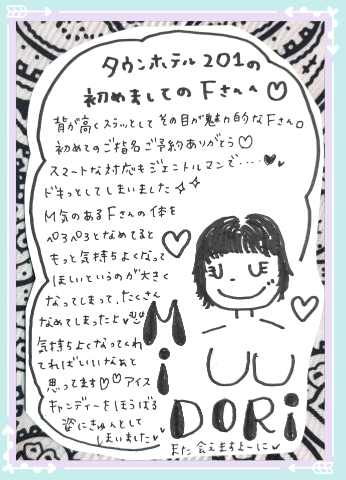 タウンホテル201の
初めましてのFさんへ♡
背が高くスラッとしてその目が魅力的なFさん。
初めてのご指名ご予約ありがとう♡
スマートな対応もジェントルマンで‥‥♥
ドキっとしてしまいました
M気のあるFさんの体を
ペろペろとなめてると
もっと気持ちよくなって
ほしいというのが大きく
なってしまって、たくさん
なめてしまったよ
気持ちよくなってくれ
てればいいなあと
思ってます♡♡ アイス
キャンディーをほうばる
姿にきゅんとして
しまいました♥
MiDORi
また会えますよーに♥